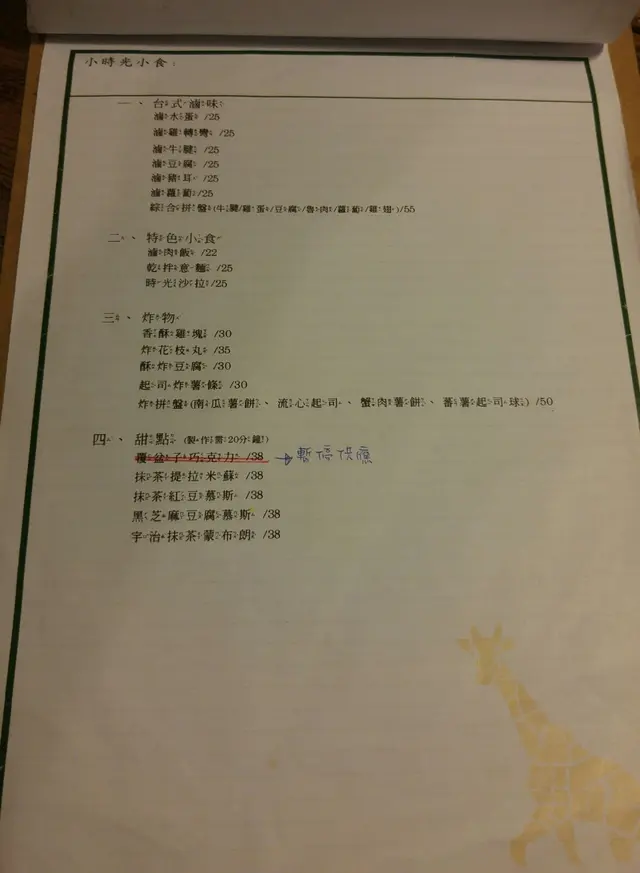 小時光小食:
一、台式滷味
滷水蛋 /25
滷雞轉彎 /25
滷牛腱 /25
滷豆腐 /25
滷豬耳 /25
滷蘿蔔 /25
綜合拼盤(牛腱/雞蛋/豆腐/魯肉/蘿蔔/雞翅)/55
二、特色小食
滷肉飯 /22
乾拌意麵 /25
時光沙拉 /25
三、炸物
香酥雞塊 /30
炸花枝丸 /35
酥炸豆腐 /30
起司炸薯條 /30
炸拼盤(南瓜薯餅、流心起司、蟹肉薯餅、蕃薯起司球) /50
四、甜點 (製作需20分鐘!)
覆盆子巧克力 /38 → 暫停供應
抹茶提拉米蘇 /38
抹茶紅豆慕斯 /38
黑芝麻豆腐慕斯 /38
宇治抹茶蒙布朗 /38